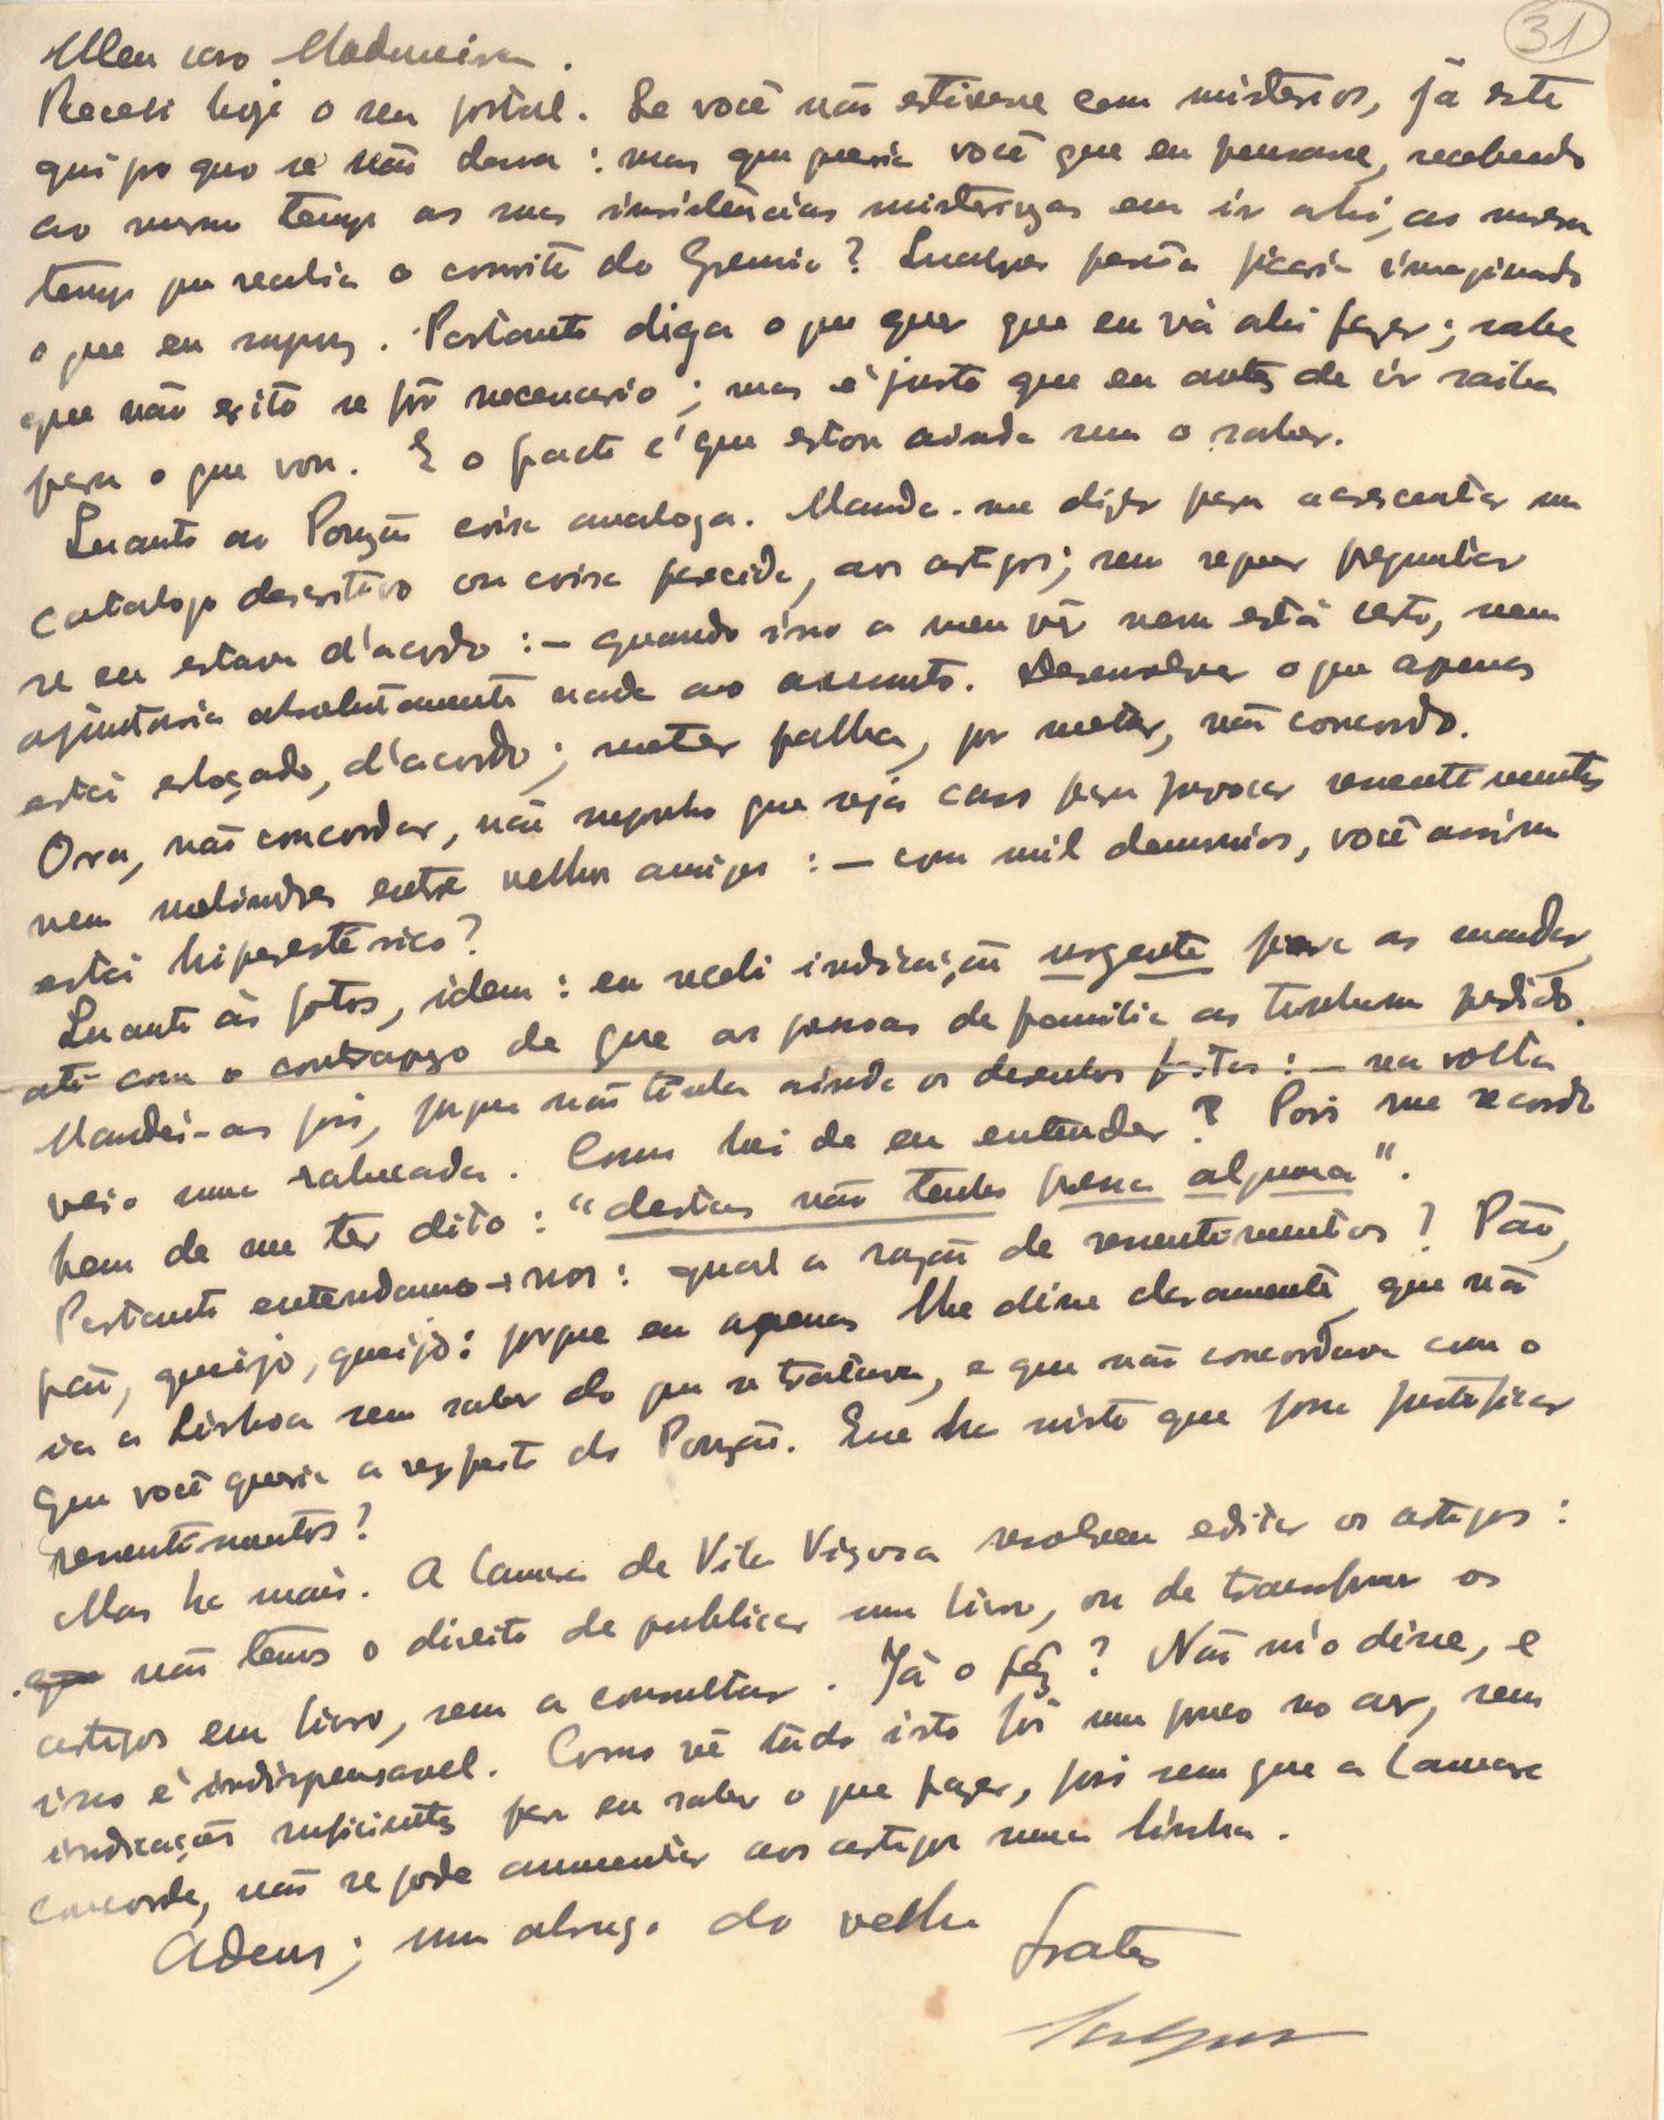 31
Meu caro Madureira.
Recebi hoje o seu postal. Se você não estivesse com misterios, já este
qui pro quo se não dava : mas que queria você que eu pensasse, recebendo
ao mesmo tempo as suas insistências misteriosas em ir ahi, ao mesmo
tempo que recebia o convite do Gremio? Qualquer pessôa ficaria imaginando
o que eu supuz. Portanto diga o que quer que eu vá ahi fazer; sabe
que não exito se fôr necessario; mas é justo que eu antes de ir saiba
para o que vou. E o facto é que estou ainda sem o saber.
Quanto ao Ponção coisa analoga. Manda-me dizer para acrescentar um
catalogo descritivo ou coisa parecida, aos artigos; sem sequer preguntar
se eu estava d'acordo :- quando isso a meu vêr nem está certo, nem
ajuntaria absolutamente nada ao assunto. Desenvolver o que apenas
está esboçado, d'acordo; meter palha, por meter, não concordo.
Ora, não concordar, não suponho que seja caso para provocar ressentimentos
nem melindres entre velhos amigos :- com mil demonios, você assim
está hiperestésico?
Quanto às fotos, idem : eu recebi indicação urgente para as mandar,
até com o contrapeso de que as pessoas de familia as tinham pedido.
Mandei-as pois, porque não tinha ainda os desenhos feitos :- na volta
veio uma rabecada. Como hei de eu entender? Pois me recordo
bem de me ter dito : "destas não tenho pressa alguma".
Portanto entendamo-nos : qual a razão de ressentimentos? Pão,
pão, queijo, queijo : porque eu apenas lhe disse claramente, que não
ia a Lisboa sem saber do que se tratava, e que não concordava com o
que você queria a respeito do Ponção. Que ha nisto que possa justificar
ressentimentos?
Mas ha mais. A Camara de Vila Viçosa resolveu editar os artigos :
não temos o direito de publicar um livro, ou de transformar os
artigos em livro, sem a consultar. Já o fêz? Não m'o disse, e
isso é indispensavel. Como vê tudo isto foi um pouco no ar, sem
indicações suficientes para eu saber o que fazer, pois sem que a Camara
concorde, não se pode aumentar aos artigos uma linha.
Adeus; um abraço do velho